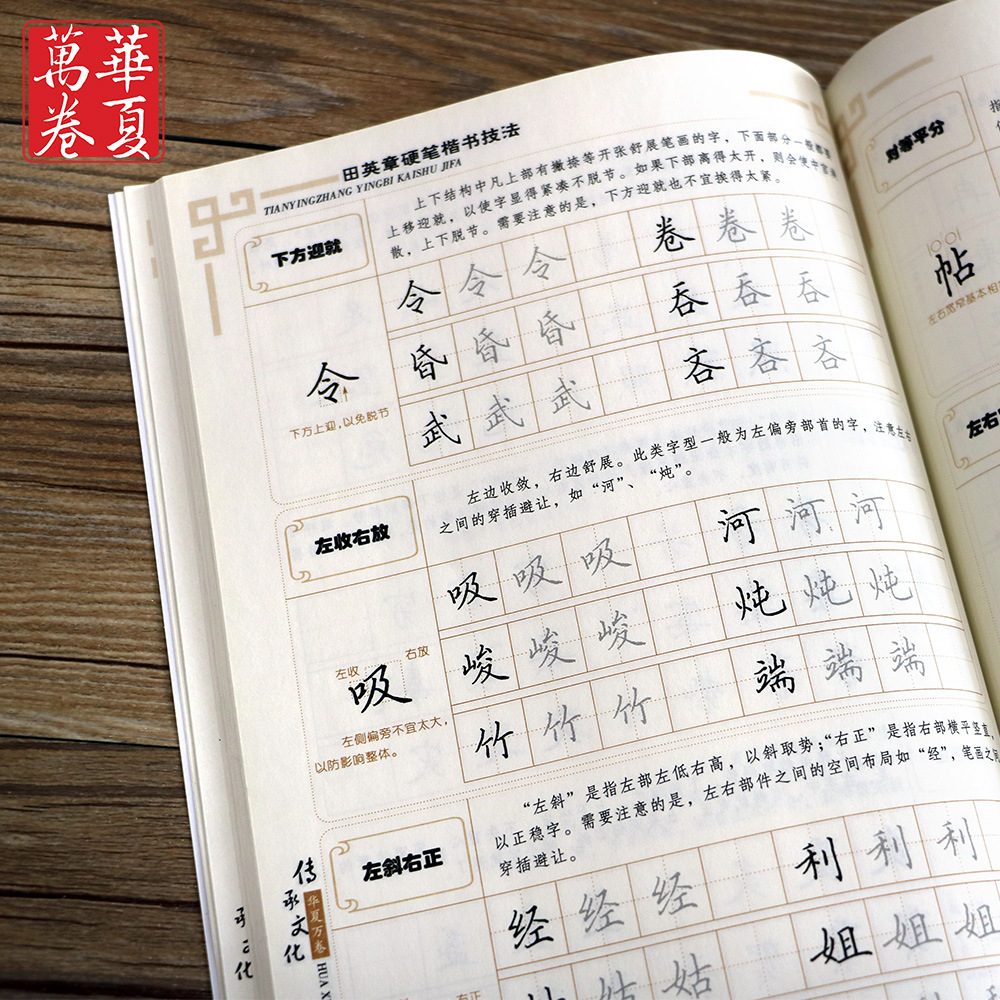 華夏
萬卷
田英章硬笔楷书技法
TIANYINGZHANG YINGBI KAISHU JIFA
下方迎就
上下结构中凡上部有撇捺等开张舒展笔画的字，下面部分一般都要
上移迎就，以使字显得紧凑不脱节。如果下部离得太开，则会使字
散，上下脱节。需要注意的是，下方迎就也不宜挨得太紧。
令 令 令 卷 卷 卷
昏 昏 昏 吞 吞 吞
武 武 武 吝 吝 吝
令
下方上迎，以免脱节
左收右放
左边收敛，右边舒展。此类字型一般为左偏旁部首的字，注意左右
之间的穿插避让，如“河”、“炖”。
吸 吸 吸 河 河 河
峻 峻 峻 炖 炖 炖
竹 竹 竹 端 端 端
左收
右放
吸
左侧偏旁不宜太大，
以防影响整体。
左斜右正
“左斜”是指左部左低右高，以斜取势；“右正”是指右部横平竖直，
以正稳字。需要注意的是，左右部件之间的空间布局如“经”，笔画之间
穿插避让。
经 经 经 利 利 利
姑 姑 姐 姐 姐
右正
传承文化
华夏万卷
HUA X
承文化
对等平分
帖
左右宽窄基本相
左右